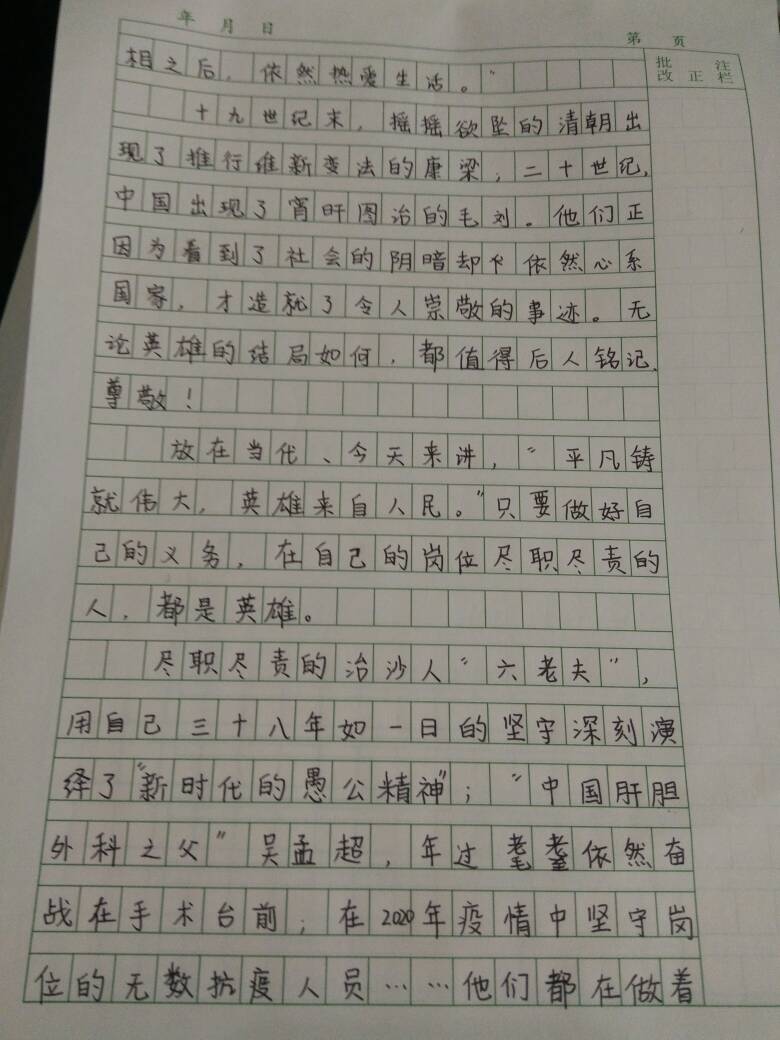 年 月 日
第 页
批注
改正栏
相之后，依然热爱生活。”
十九世纪末，摇摇欲坠的清朝出
现了推行维新变法的康梁；二十世纪，
中国出现了宵旰图治的毛刘。他们正
因为看到了社会的阴暗却依然心系
国家，才造就了令人崇敬的事迹。无
论英雄的结局如何，都值得后人铭记、
尊敬！
放在当代、今天来讲，“平凡铸
就伟大，英雄来自人民。”只要做好自
己的义务，在自己的岗位尽职尽责的
人，都是英雄。
尽职尽责的治沙人“六老夫”，
用自己三十八年如一日的坚守深刻演
绎了“新时代的愚公精神”；“中国肝胆
外科之父”吴孟超，年过耄耋依然奋
战在手术台前；在2020年疫情中坚守岗
位的无数抗疫人员……他们都在做着